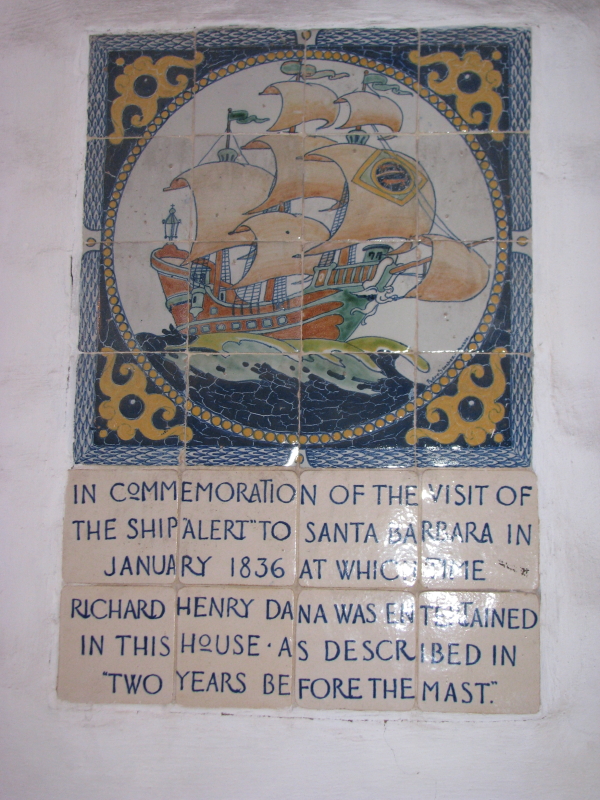 IN COMMEMORATION OF THE VISIT OF
THE SHIP "ALERT" TO SANTA BARBARA IN
JANUARY 1836 AT WHICH TIME
RICHARD HENRY DANA WAS ENTERTAINED
IN THIS HOUSE · AS DESCRIBED IN
"TWO YEARS BEFORE THE MAST."